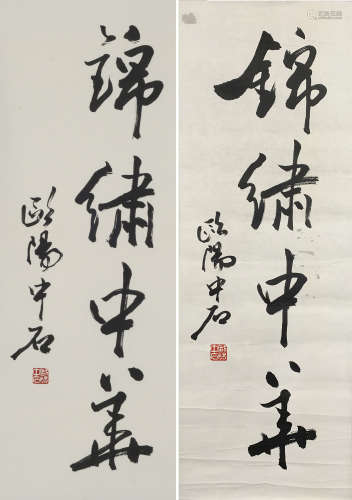 錦繡中華
歐陽中石
錦繡中華
歐陽中石